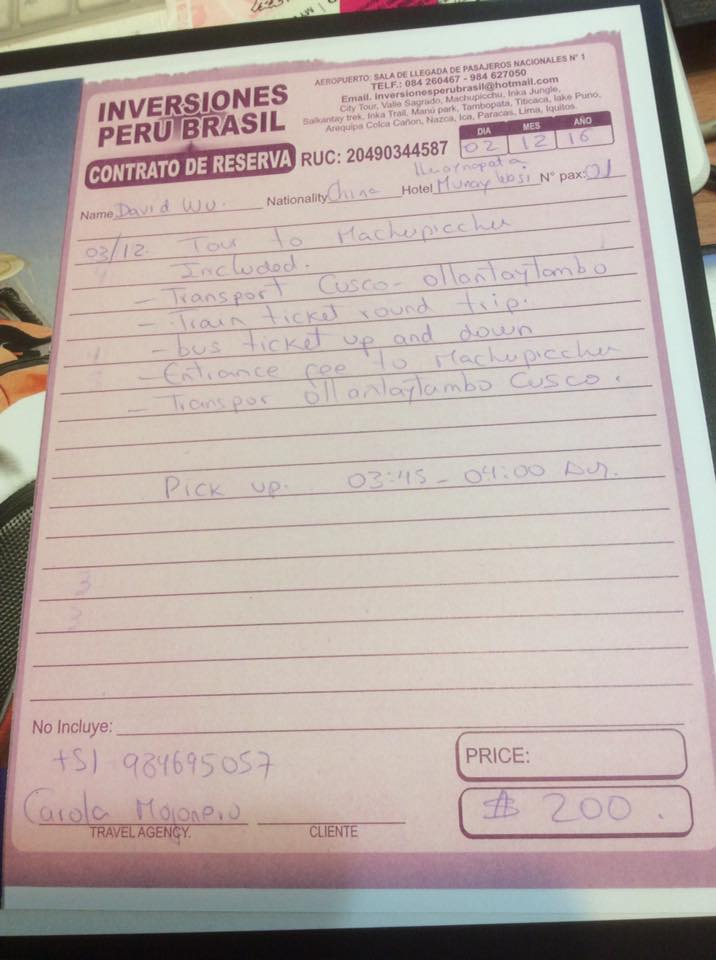 AEROPUERTO: SALA DE LLEGADA DE PASAJEROS NACIONALES N° 1
TELF.: 084 260467 - 984 627050
Email. inversionesperubrasil@hotmail.com
City Tour, Valle Sagrado, Machupicchu, Inka Jungle,
Salkantay trek, Inka Trail, Manú park, Tambopata, Titicaca, lake Puno,
Arequipa Colca Cañon, Nazca, Ica, Paracas, Lima, Iquitos.
INVERSIONES
PERÚ BRASIL
CONTRATO DE RESERVA RUC: 20490344587
DIA MES AÑO
02 12 16
Name David Wu. Nationality China Hotel Munay Wasi N° pax: 01
03/12. Tour to Machupicchu
Included.
- Transport Cusco - ollantaytambo
- Train ticket round trip.
- bus ticket up and down
- Entrance fee to Machupicchu
- Transpor ollantaytambo Cusco.
Pick up. 03:45 - 04:00
3
3
No Incluye:
+51 984695057
PRICE:
Carola
$ 200.
TRAVEL AGENCY. CLIENTE